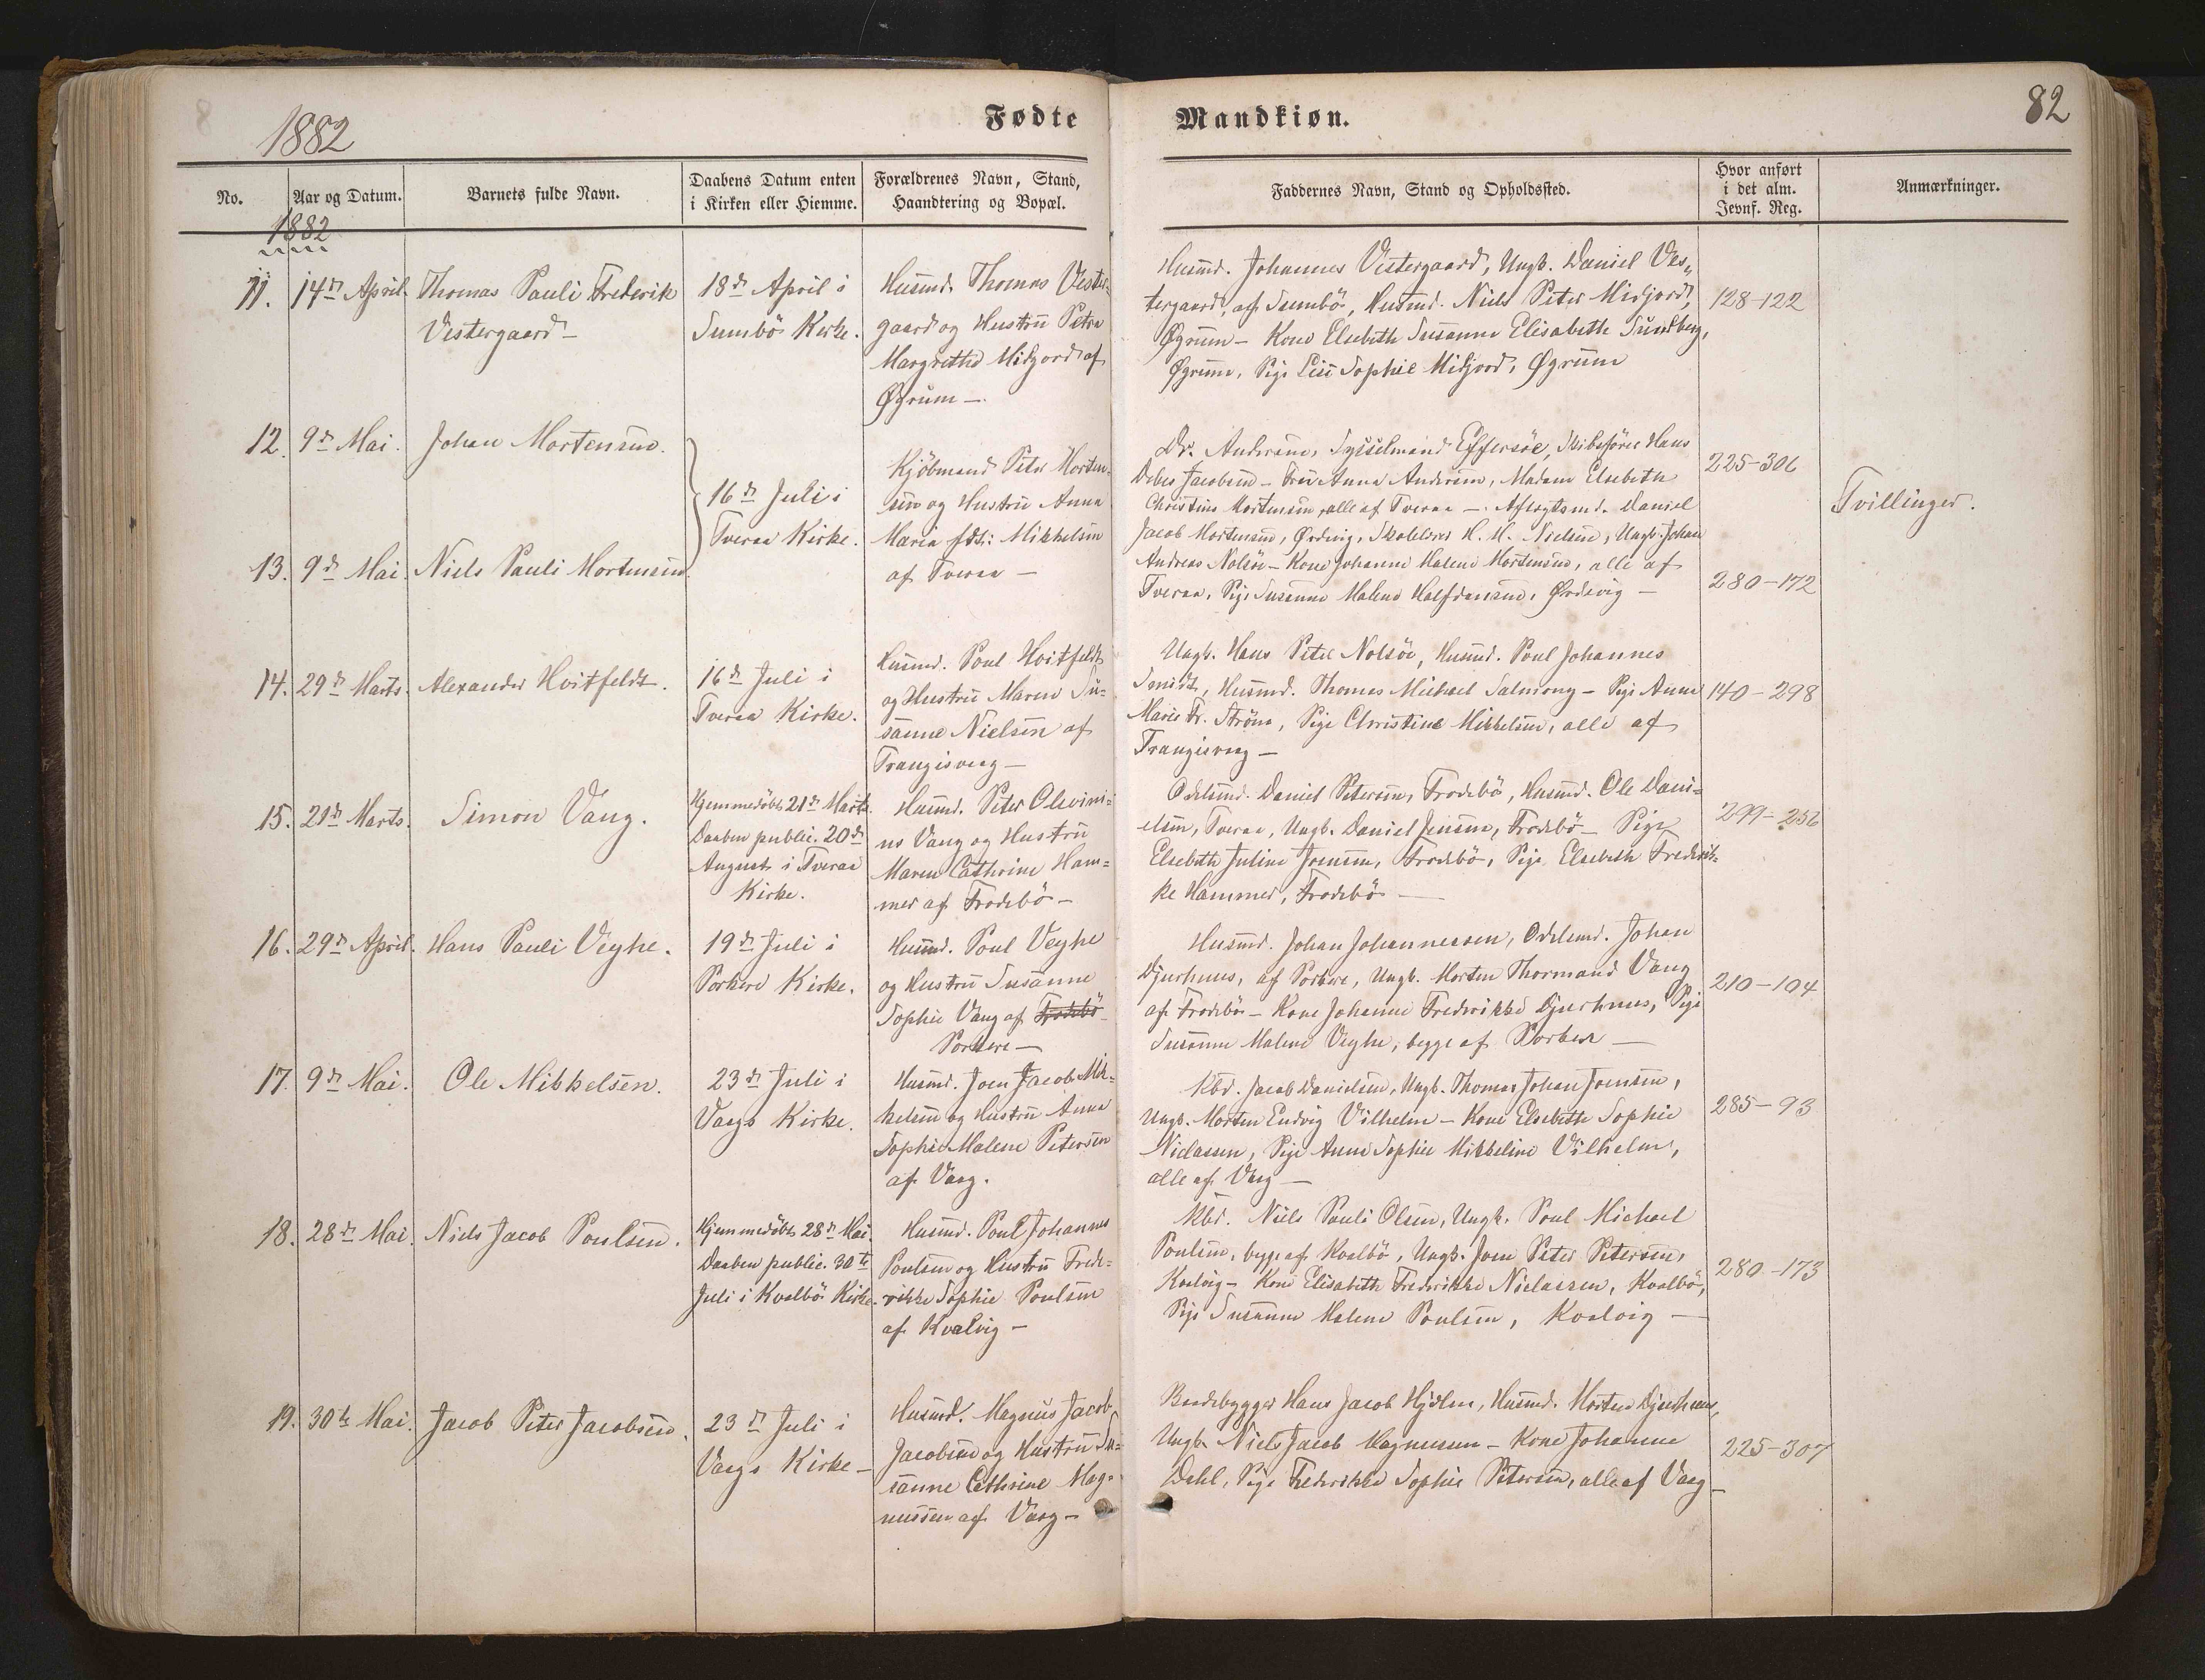 1882
Fødte
Mandkiøn.
82
No.
Aar og Datum.
Barnets fulde Navn.
Daabens Datum enten
i Kirken eller Hiemme.
Forældrenes Navn, Stand,
Haandtering og Bopæl.
Faddernes Navn, Stand og Opholdssted.
Hvor anført
i det alm.
Jevnf. Reg.
Anmærkninger.
1882
11.
14de April
Thomas Pauli Frederik
Vestergaard
18de April i
Sumbö Kirke.
Husmd. Thomas Vester-
gaard og Hustru Petra
Margrethe Midjord af
Øgrum
Husmd. Johannes Vestergaard, Ungk. Daniel Ves-
tergaard, af Sumbö, Husmd. Niels Peter Midjord,
Øgrum - Kone Elsebeth Susanne Elisabeth Sundberg,
Øgrum, Pige Sophie Midjord, Øgrum
128-122
12.
9de Mai.
Johan Mortensen.
16de Juli i
Tveraa Kirke.
Kjöbmand Peter Morten-
sen og Hustru Anna
Maria fdt: Mikkelsen
af Tveraa
Dr. Andersen, Sysselmand Effersöe, Skibsförer Hans
Debes Jacobsen - Fru Anna Andersen, Madam Elsebeth
Christine Mortensen, alle af Tveraa - Aftægtsmd. Daniel
225-306
Tvillinger.
13.
9de Mai.
Niels Pauli Mortensen.
Jacob Mortensen, Ørdevig, Skolelærer H. M. Nielsen, Ungk. Johan
Andreas Nolsöe - Kone Johanne Malene Mortensen, alle af
Tveraa, Pige Susanne Malene Halfdansen, Ørdevig
280-172
14.
29de Marts.
Alexander Hvitfeldt.
16de Juli i
Tveraa Kirke.
Husmd. Poul Hvitfeldt
og Hustru Maren Su-
sanne Nielsen af
Trangisvaag
Ungk. Hans Peter Nolsöe, Husmd. Poul Johannes
Smidt, Husmd. Thomas Michael Salmong - Pige Anne
Marie Fr. Ström, Pige Christine Mikkelsen, alle af
Trangisvaag
140-298
15.
21de Marts.
Simon Vang.
Hjemmedöbt 21de Marts.
Daaben public. 20de
August i Tveraa
Kirke.
Husmd. Peter Olevini-
us Vang og Hustru
Maren Cathrine Ham-
mer af Frodebö
Odelsmd. Daniel Petersen, Frodebö, Husmd. Ole Dani-
elsen, Tveraa, Ungk. Daniel Jensen, Frodebö - Pige
Elsebeth Juline Joensen, Frodebö, Pige Elsebeth Frederik-
ke Hammer, Frodebö
299-256
16.
29de April.
Hans Pauli Veyhe.
19de Juli i
Porkere Kirke.
Husmd. Poul Veyhe
og Hustru Susanne
Sophie Vang af Frodebö
Porkere
Husmd. Johan Johannessen, Odelsmd. Johan
Djurhuus, af Porkere, Ungk. Morten Thormand Vang
af Frodebö - Kone Johanne Frederikke Djurhuus, Pige
Susanne Malene Veyhe, begge af Porkere
210-104
17.
9de Mai.
Ole Mikkelsen.
23de Juli i
Vaags Kirke.
Husmd. Joen Jacob Mik-
kelsen og Hustru Anna
Sophie Malene Petersen
af Vaag.
Kbd. Jacob Danielsen, Ungk. Thomas Johan Joensen,
Ungk. Morten Ludvig Vilhelm - Kone Elsebeth Sophie
Niclassen, Pige Anne Sophie Mikkeline Vilhelm,
alle af Vaag
285-93
18.
28de Mai.
Niels Jacob Poulsen.
Hjemmedöbt 28de Mai.
Daaben public. 30te
Juli i Kvalbö Kirke.
Husmd. Poul Johannes
Poulsen og Hustru Frede-
rikke Sophie Poulsen
af Kvalvig
Kbd. Niels Pauli Olsen, Ungk. Poul Michael
Poulsen, begge af Kvalbö, Ungk. Joen Peter Petersen,
Kvalvig - Kone Elisabeth Frederikke Niclassen, Kvalbö,
Pige Susanne Malene Poulsen, Kvalvig
280-173
19.
30te Mai.
Jacob Peter Jacobsen.
23de Juli i
Vaags Kirke
Husmd. Magnus Jacob
Jacobsen og Hustru Su-
sanne Cathrine Mag-
nussen af Vaag
Baadebygger Hans Jacob Hjelm, Husmd. Morten Djurhuus,
Ungk. Niels Jacob Magnussen - Kone Johanne
Dahl, Pige Frederikke Sophie Petersen, alle af Vaag
225-307